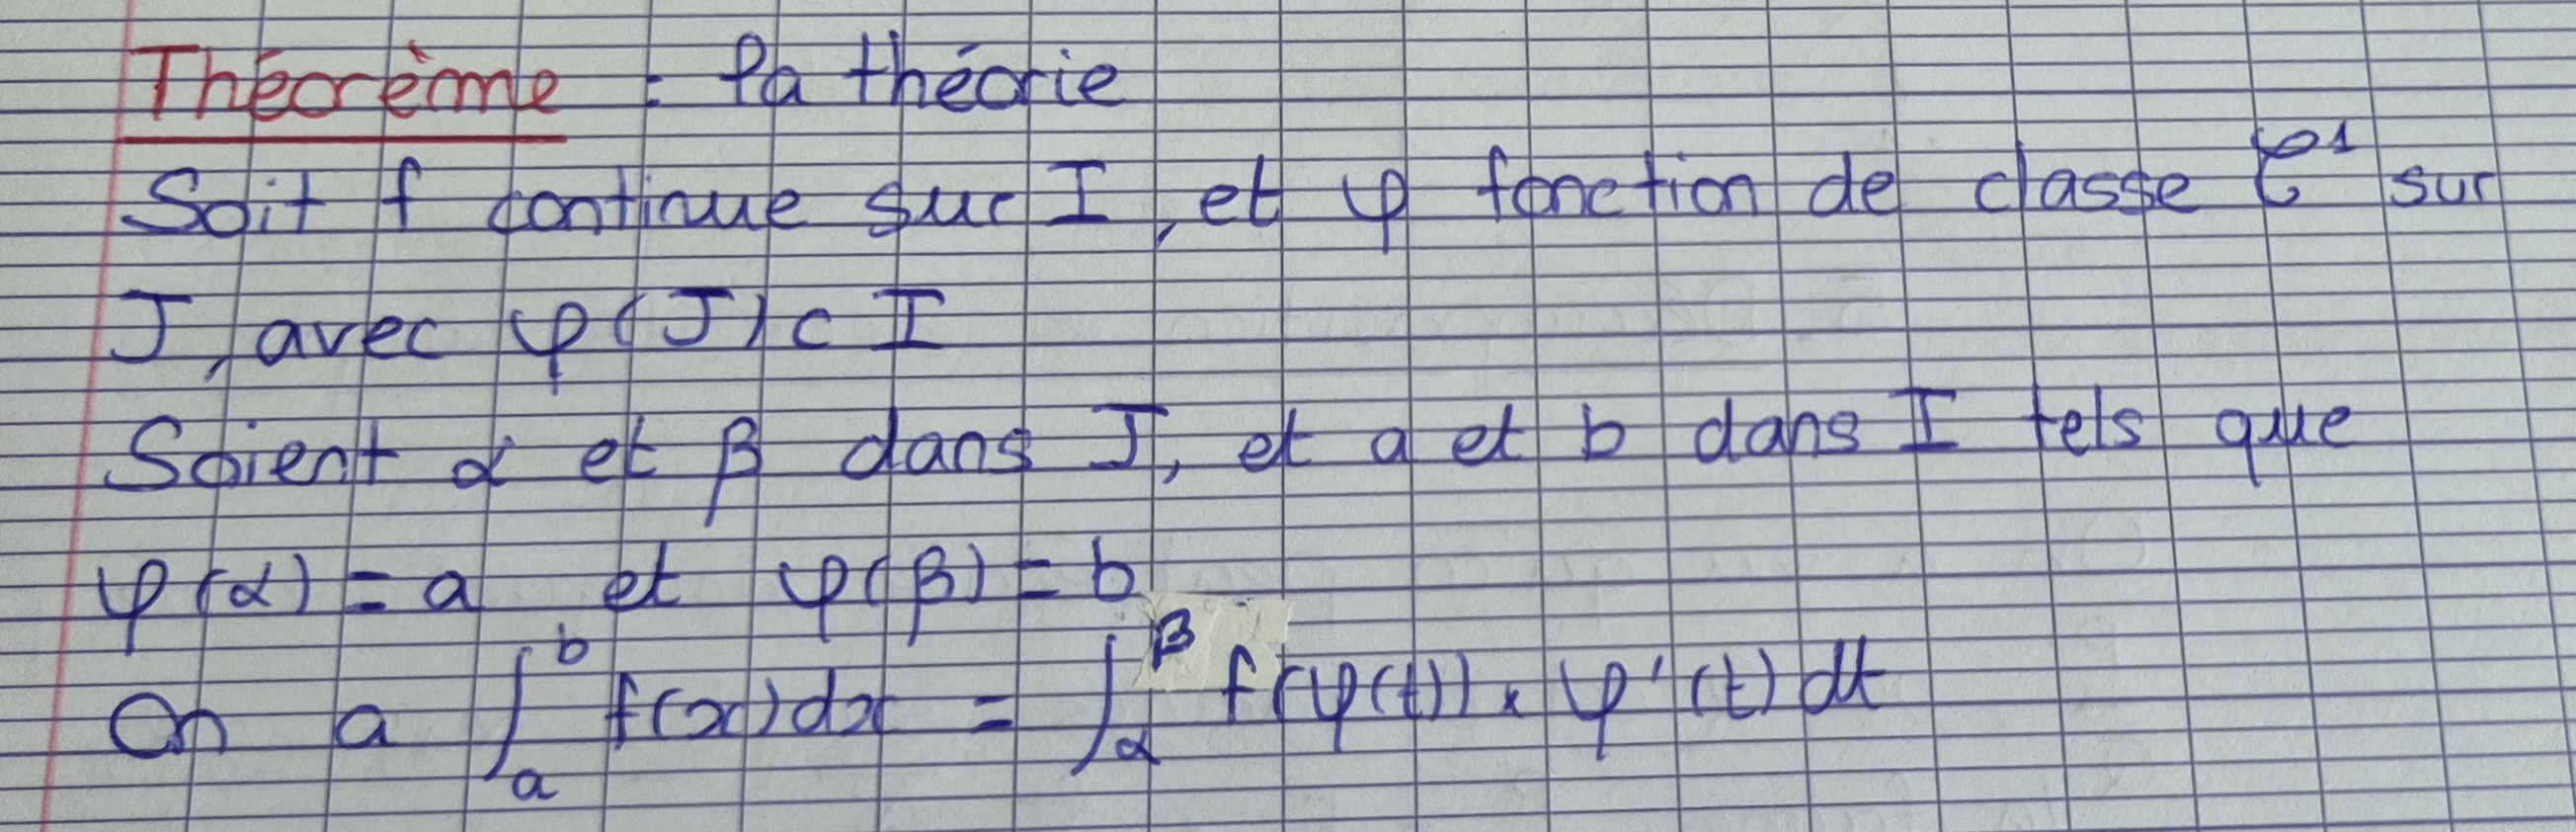 Théorème : la théorie
Soit f continue sur I, et φ fonction de classe 𝒞¹ sur
J, avec φ(J) ⊂ I
Soient α et β dans J, et a et b dans I tels que
φ(α) = a et φ(β) = b
On a ∫_a^b f(x)dx = ∫_α^β f(φ(t)) × φ'(t) dt